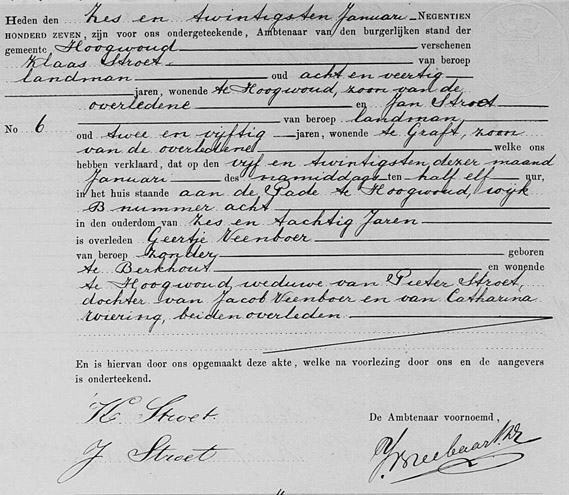 Heden den zes en twintigsten Januari NEGENTIEN
HONDERD ZEVEN, zijn voor ons ondergeteekende, Ambtenaar van den burgerlijken stand der
gemeente Hoogwoud verschenen
Klaas Stroet van beroep
landman oud acht en veertig
jaren, wonende te Hoogwoud, zoon van de
overledene en Jan Stroet
No 6 van beroep landman,
oud twee en vijftig jaren, wonende te Graft, zoon
van de overledene welke ons
hebben verklaard, dat op den vijf en twintigsten dezer maand
Januari des namiddags ten half elf ure,
in het huis staande aan de Pade te Hoogwoud, wijk
B nummer acht
in den ouderdom van zes en tachtig Jaren
is overleden Geertje Veenboer
van beroep zonder geboren
te Berkhout en wonende
te Hoogwoud, weduwe van Pieter Stroet,
dochter van Jacob Veenboer en van Catharina
Wiering, beiden overleden
En is hiervan door ons opgemaakt deze akte, welke na voorlezing door ons en de aangevers
is onderteekend.
K Stroet.
De Ambtenaar voornoemd,
J Stroet